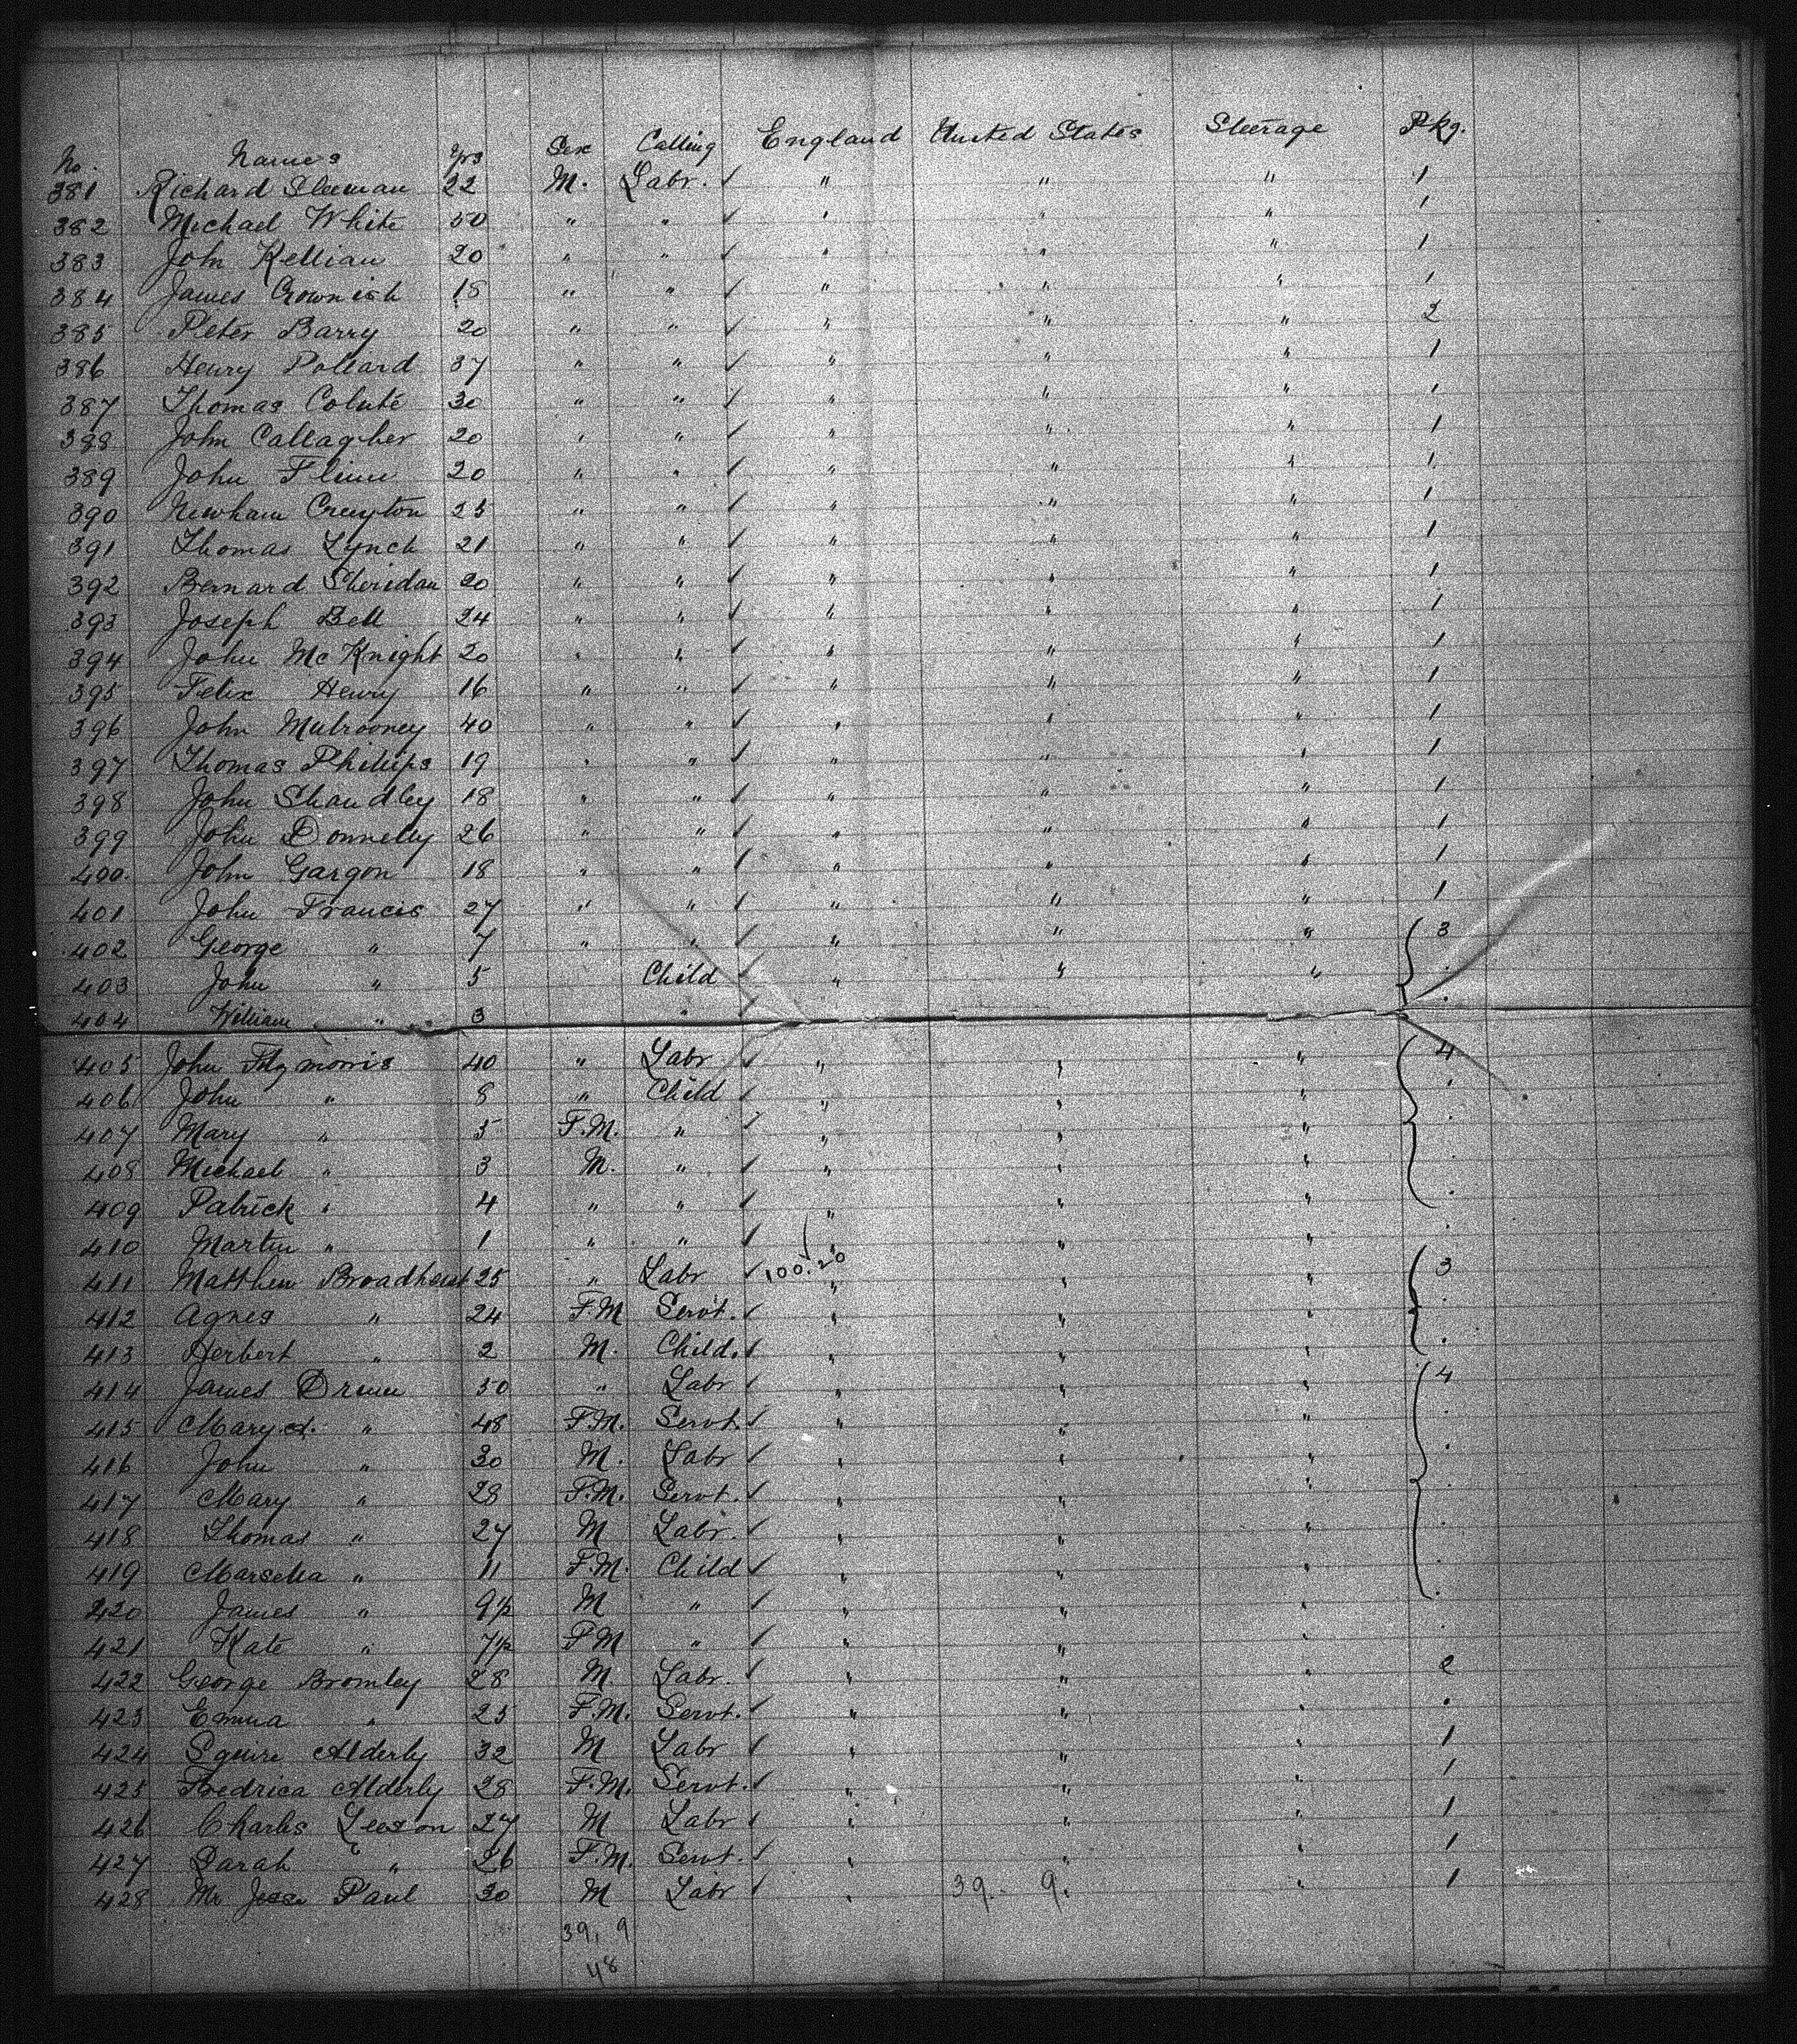 No. Names Yrs Sex Calling England United States Steerage Pkg.
381 Richard Sleeman 22 M. Labr. ✓ " " " 1
382 Michael White 50 " " ✓ " " " 1
383 John Kellian 20 " " ✓ " " " 1
384 James Crownish 18 " " ✓ " " " 1
385 Peter Barry 20 " " ✓ " " " 2
386 Henry Pollard 37 " " ✓ " " " 1
387 Thomas Coluté 30 " " ✓ " " " 1
388 John Callagher 20 " " ✓ " " " 1
389 John Flinn 20 " " ✓ " " " 1
390 Newham Creyton 25 " " ✓ " " " 1
391 Thomas Lynch 21 " " ✓ " " " 1
392 Bernard Sheridan 20 " " ✓ " " " 1
393 Joseph Bell 24 " " ✓ " " " 1
394 John McKnight 20 " " ✓ " " " 1
395 Felix Henry 16 " " ✓ " " " 1
396 John Mulrooney 40 " " ✓ " " " 1
397 Thomas Philips 19 " " ✓ " " " 1
398 John Shandley 18 " " ✓ " " " 1
399 John Donnelly 26 " " ✓ " " " 1
400. John Gargon 18 " " ✓ " " " 1
401 John Francis 27 " " ✓ " " " 1
402 George " 7 " " ✓ " " " 3
403 John " 5 Child ✓ " " " .
404 William " 3 " ✓ .
405 John Fitzmorris 40 " Labr ✓ " " " 4
406 John " 8 " Child ✓ " " " .
407 Mary " 5 F.M. " ✓ " " " .
408 Michael " 3 M. " ✓ " " " .
409 Patrick " 4 " " ✓ " " " .
410 Martin " 1 " " ✓ " " " .
411 Matthew Broadhurst 25 " Labr ✓ 100.20 " " " 3
412 Agnes " 24 F.M Servt. ✓ " " " .
413 Herbert " 2 M. Child. ✓ " " " .
414 James Drum 50 " Labr ✓ " " " 4
415 Mary.A. " 48 F.M. Servt. ✓ " " " .
416 John " 30 M. Labr ✓ " " " .
417 Mary " 28 F.M. Servt. ✓ " " " .
418 Thomas " 27 M Labr. ✓ " " " .
419 Marselia " 11 F.M. Child ✓ " " " .
420 James " 9½ M " ✓ " " " .
421 Kate " 7½ F M " ✓ " " " .
422 George Bromley 28 M. Labr. ✓ " " " 2
423 Emma " 25 F.M. Servt. ✓ " " " .
424 Squire Alderly 32 M Labr ✓ " " " 1
425 Fredrica Alderly 28 F.M. Servt. ✓ " " " 1
426 Charles Leeson 27 M Labr ✓ " " " 1
427 Sarah " 26 F.M. Servt. ✓ " " " 1
428 Mr Jesse Paul 30 M Labr ✓ " 39. 9. " 1
39, 9
48